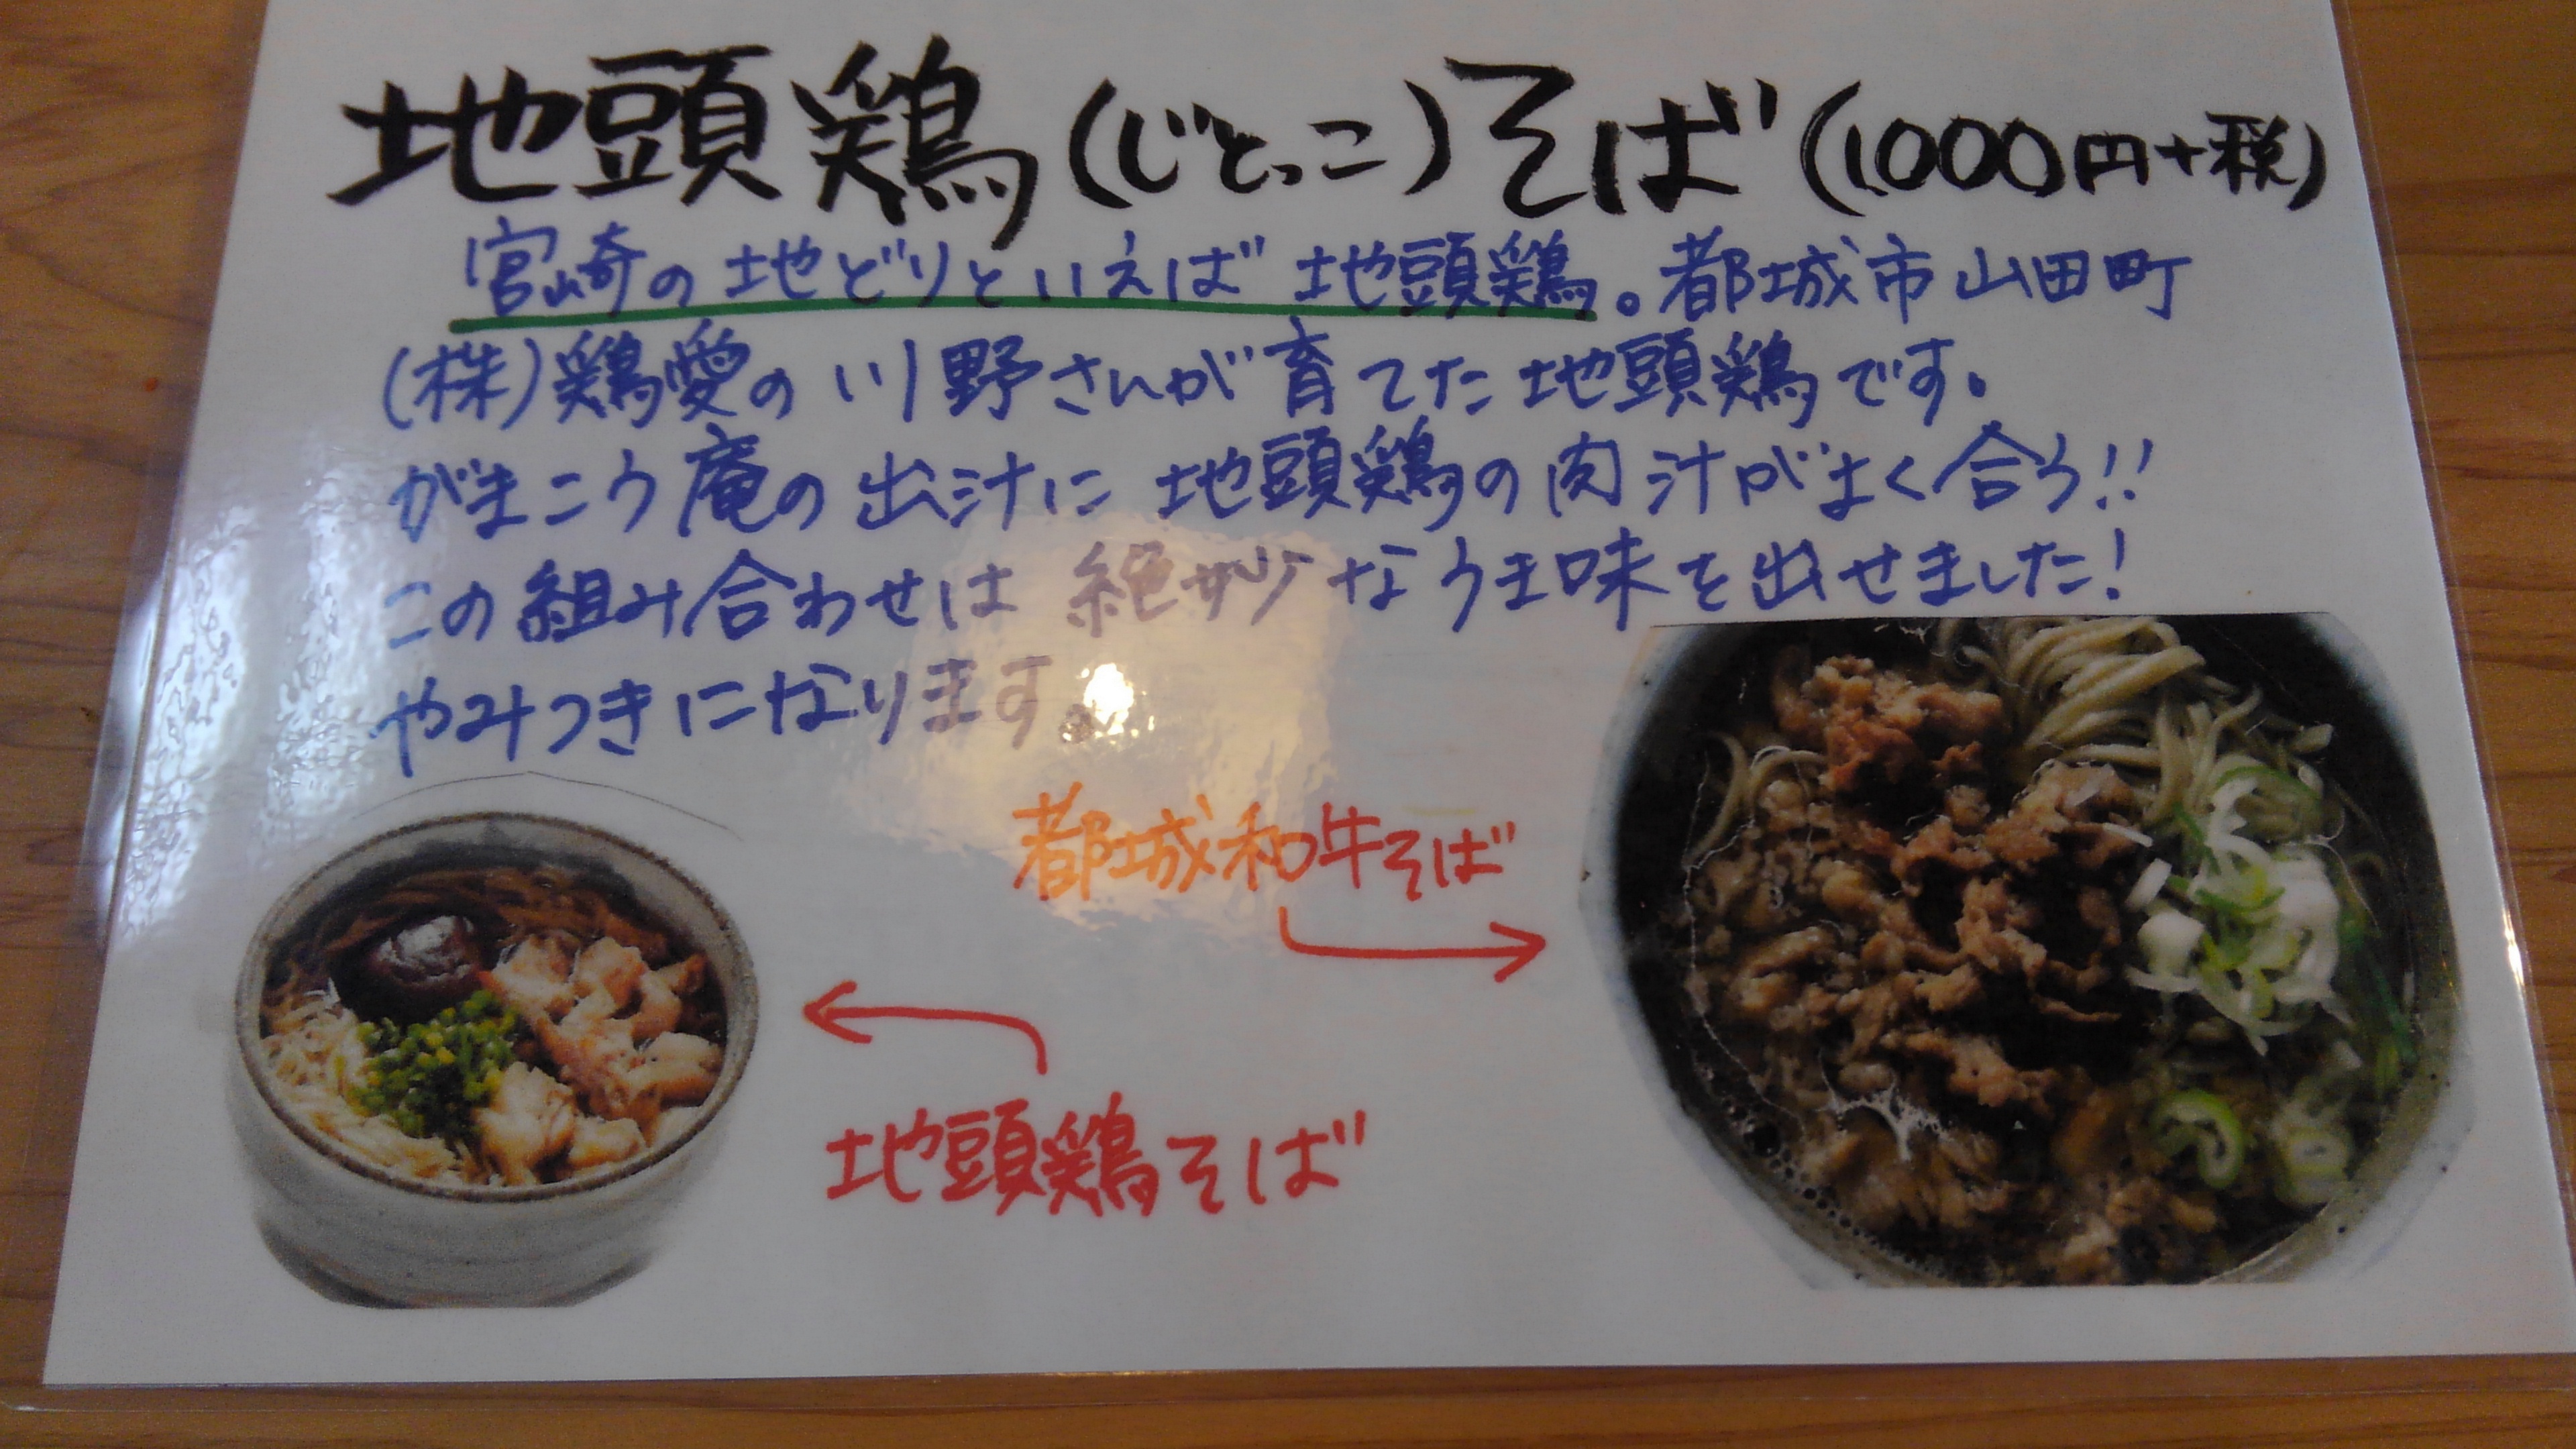 地頭鶏(じとっこ)そば(1.000円+税)
宮崎の地どりといえば地頭鶏。都城市山田町
(株)鶏愛の川野さんが育てた地頭鶏です。
がまこう庵の出汁に地頭鶏の肉汁がまく合う!!
この組み合わせは絶妙なうま味を出せました!
やみつきになります。
都城和牛そば
地頭鶏そば